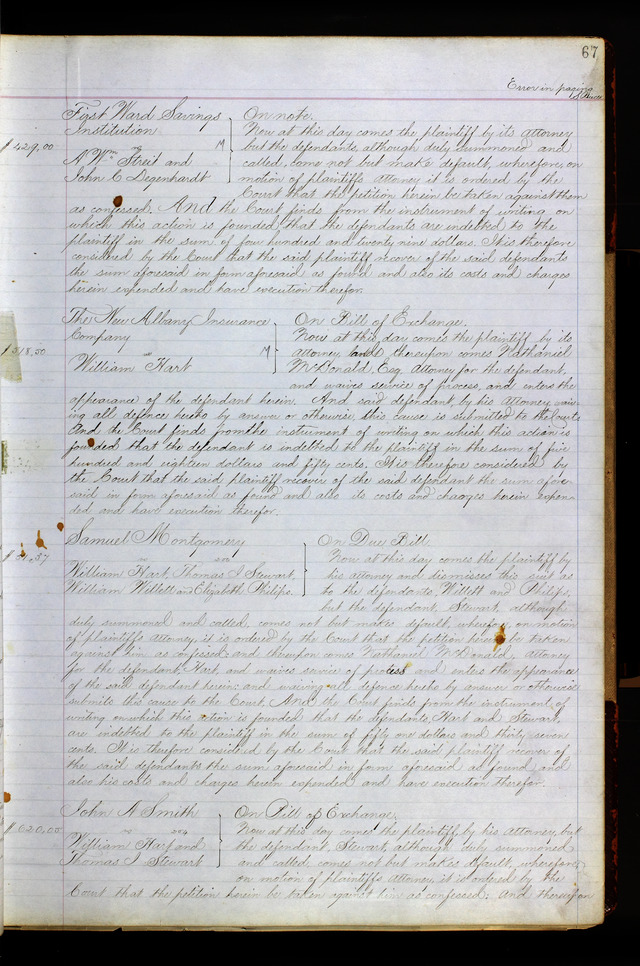 67
Error in paging
First Ward Savings
Institution
$429.00
vs
A Wm Streit and
John C Degenhardt
On note.
Now at this day comes the plaintiff by its attorney
but the defendants, although duly summoned and
called, come not but make default, wherefore, on
motion of plaintiffs attorney it is ordered by the
Court that the petition herein be taken against them
as confessed. And the Court finds from the instrument of writing on
which this action is founded, that the defendants are indebted to the
plaintiff in the sum of four hundred and twenty nine dollars. It is therefore
considered by the Court that the said plaintiff recover of the said defendants
the sum aforesaid in form aforesaid as found and also its costs and charges
herein expended and have execution therefor.
The New Albany Insurance
Company
$518.50
vs
William Hart
On Bill of Exchange.
Now at this day comes the plaintiff by its
attorney and thereupon comes Nathaniel
McDonald, Esq. attorney for the defendant,
and waives service of process, and enters the
appearance of the defendant herein. And said defendant, by his attorney, waiv-
ing all defence hereto by answer or otherwise, this cause is submitted to the Court.
And the Court finds from the instrument of writing on which this action is
founded that the defendant is indebted to the plaintiff in the sum of five
hundred and eighteen dollars and fifty cents. It is therefore considered by
the Court that the said plaintiff recover of the said defendant the sum afore-
said in form aforesaid as found and also its costs and charges herein expen-
ded and have execution therefor.
Samuel Montgomery
vs
William Hart, Thomas I Stewart,
William Willett and Elizabeth Philips.
On Due Bill
Now at this day comes the plaintiff by
his attorney and dismisses this suit as
to the defendants, Willett and Philips,
but the defendant, Stewart, although
duly summoned and called, comes not but makes default, wherefore, on motion
of plaintiffs attorney, it is ordered by the Court that the petition herein be taken
against him as confessed: and thereupon comes Nathaniel McDonald, attorney
for the defendant, Hart, and waives service of process and enters the appearance
of the said defendant herein: and waiving all defence hereto by answer or otherwise
submits this cause to the Court. And the Court finds from the instrument of
writing on which this action is founded that the defendants, Hart and Stewart,
are indebted to the plaintiff in the sum of fifty one dollars and thirty seven
cents. It is therefore considered by the Court that the said plaintiff recover of
the said defendants the sum aforesaid in form aforesaid as found, and
also his costs and charges herein expended and have execution therefor.
John A Smith
$620.00
vs
William Hart and
Thomas I Stewart
On Bill of Exchange.
Now at this day comes the plaintiff, by his attorney, but
the defendant, Stewart, although duly summoned
and called comes not but makes default, wherefore,
on motion of plaintiffs attorney, it is ordered by the
Court that the petition herein be taken against him as confessed: and thereupon